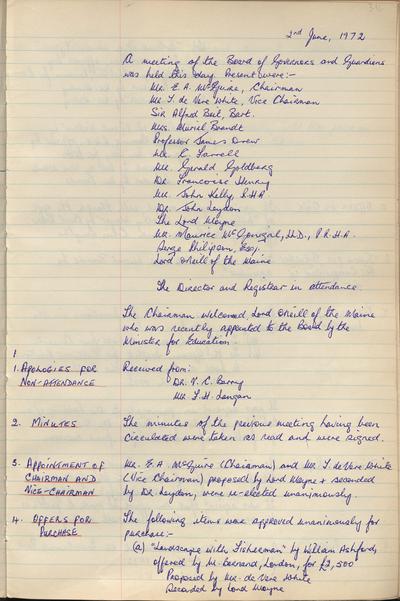 2nd June, 1972
A meeting of the Board of Governors and Guardians
was held this day. Present were:-
Mr. E. A. McGuire, Chairman
Mr. T. de Vere White, Vice Chairman
Sir Alfred Beit, Bart.
Mrs. Muriel Brandt
Professor James Drew
Mr. C. Farrell
Mr. Gerald Goldberg
Dr. Francoise Henry
Mr. John Kelly, R.H.A.
Dr. John Leydon
The Lord Moyne
Mr. Maurice McGonigal, LL.D., P.R.H.A.
Serge Philipson, Esq.
Lord O'Neill of the Maine
The Director and Registrar in attendance.
The Chairman welcomed Lord O'Neill of the Maine
who was recently appointed to the Board by the
Minister for Education.
1. APOLOGIES FOR NON-ATTENDANCE
Received from:
Dr. T. C. Barry
Mr. S. H. Langan
2. MINUTES
The minutes of the previous meeting having been
circulated were taken as read and were signed.
3. APPOINTMENT OF CHAIRMAN AND VICE-CHAIRMAN
Mr. E. A. McGuire (Chairman) and Mr. T. de Vere White
(Vice Chairman) proposed by Lord Moyne & seconded
by Dr. Leydon, were re-elected unanimously.
4. OFFERS FOR PURCHASE
The following items were approved unanimously for
purchase:-
(a) "Landscape with Fisherman" by William Ashford,
offered by Mr. Bernard, London, for £2,500
Proposed by Mr. de Vere White
Seconded by Lord Moyne